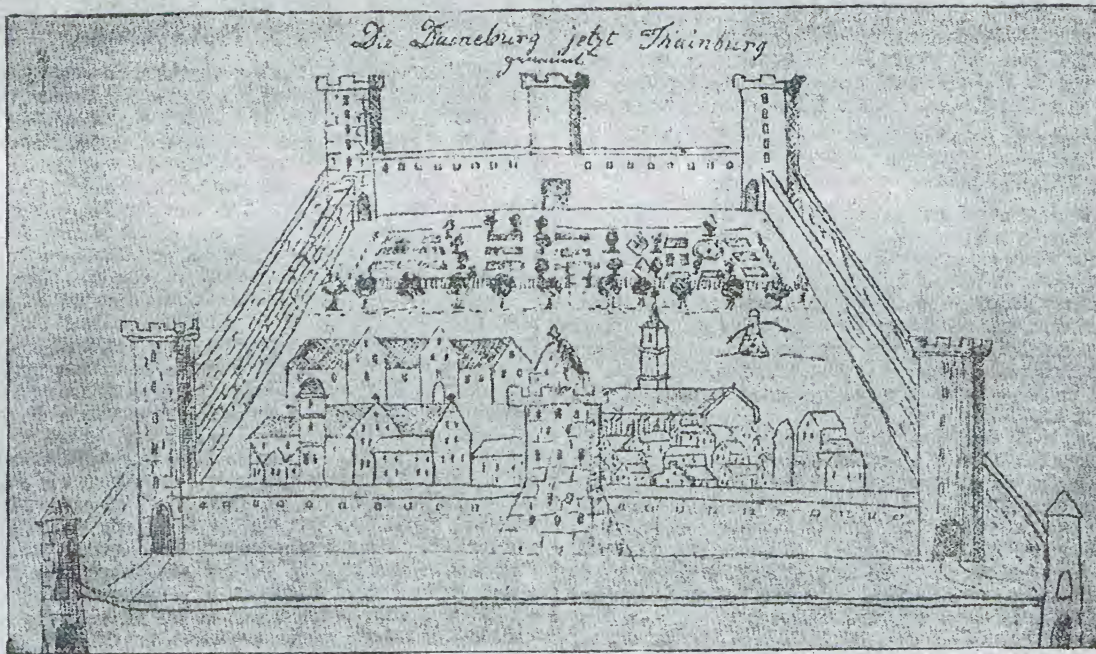 Die Daeneburg jetzt Thainburg
genannt